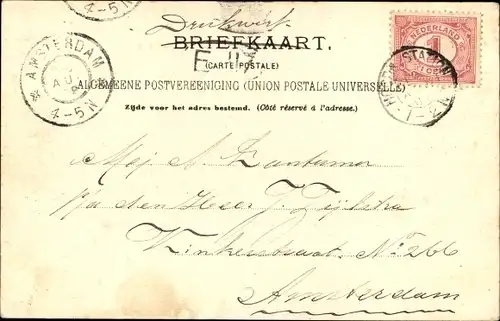 4-5N
Drukwerk
BRIEFKAART.
(CARTE POSTALE)
ALGEMEENE POSTVEREENIGING (UNION POSTALE UNIVERSELLE)
Zijde voor het adres bestemd. (Côté réservé à l'adresse.)
NEDERLAND
1
CENT
AMSTERDAM
4-5N
Mej A. Zantumer
p/a den Heer J. Zijlstra
Vinkenstraat No 266
Amsterdam